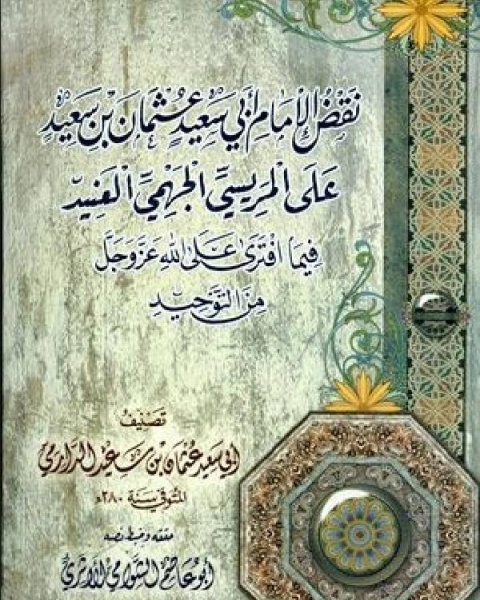 نَقْضُ الإِمَامِ أَبِي سَعِيدٍ عُثْمَانَ بْنِ سَعِيدٍ
عَلَى المَرِيسِيِّ الجَهْمِيِّ العَنِيدِ
فِيمَا افْتَرَى عَلَى اللهِ عَزَّ وَجَلَّ
مِنَ التَّوْحِيدِ
تَصْنِيفُ
أبي سعيد عثمان بن سعيد الدارمي
المتوفى سنة ٢٨٠ھ
حققه وضبط نصه
أبو عاصم الشوامي الأثري